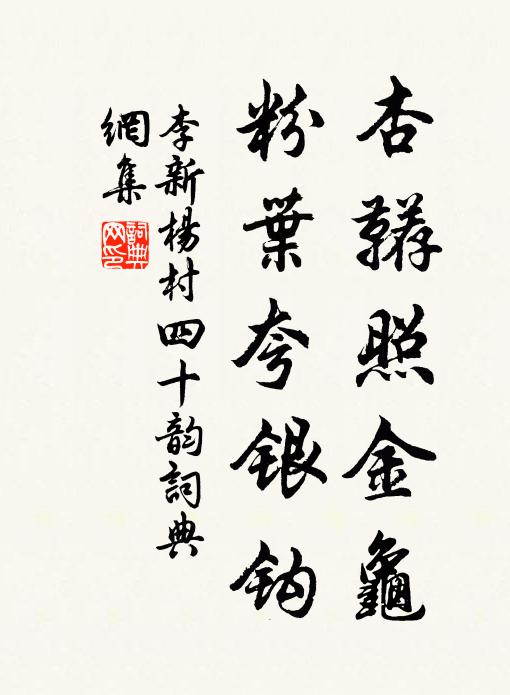 杏鞯照金龜
粉葉夸銀鈎
李新楊村四十韵詞典
網集
詞典网印